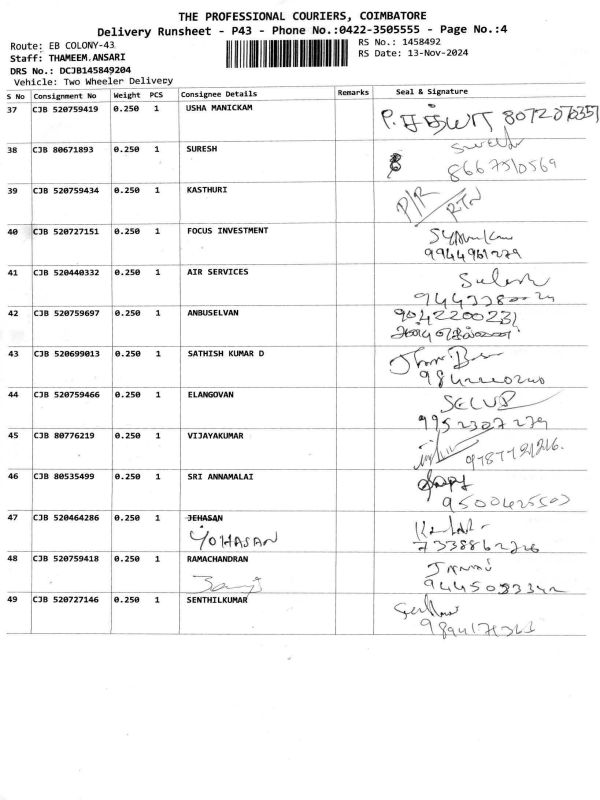 THE PROFESSIONAL COURIERS, COIMBATORE
Delivery Runsheet - P43 - Phone No.:0422-3505555 - Page No.:4
Route: EB COLONY-43
RS No.: 1458492
Staff: THAMEEM.ANSARI
RS Date: 13-Nov-2024
DRS No.: DCJB145849204
Vehicle: Two Wheeler Delivery
S No Consignment No Weight PCS Consignee Details Remarks Seal & Signature
37 CJB 520759419 0.250 1 USHA MANICKAM
38 CJB 80671893 0.250 1 SURESH
8667510569
39 CJB 520759434 0.250 1 KASTHURI P/R RTN
40 CJB 520727151 0.250 1 FOCUS INVESTMENT
9944961279
41 CJB 520440332 0.250 1 AIR SERVICES
42 CJB 520759697 0.250 1 ANBUSELVAN 9042200231
43 CJB 520699013 0.250 1 SATHISH KUMAR D
44 CJB 520759466 0.250 1 ELANGOVAN
9952307279
45 CJB 80776219 0.250 1 VIJAYAKUMAR
46 CJB 80535499 0.250 1 SRI ANNAMALAI
47 CJB 520464286 0.250 1 JEHASAN
YOHASAN
48 CJB 520759418 0.250 1 RAMACHANDRAN
49 CJB 520727146 0.250 1 SENTHILKUMAR